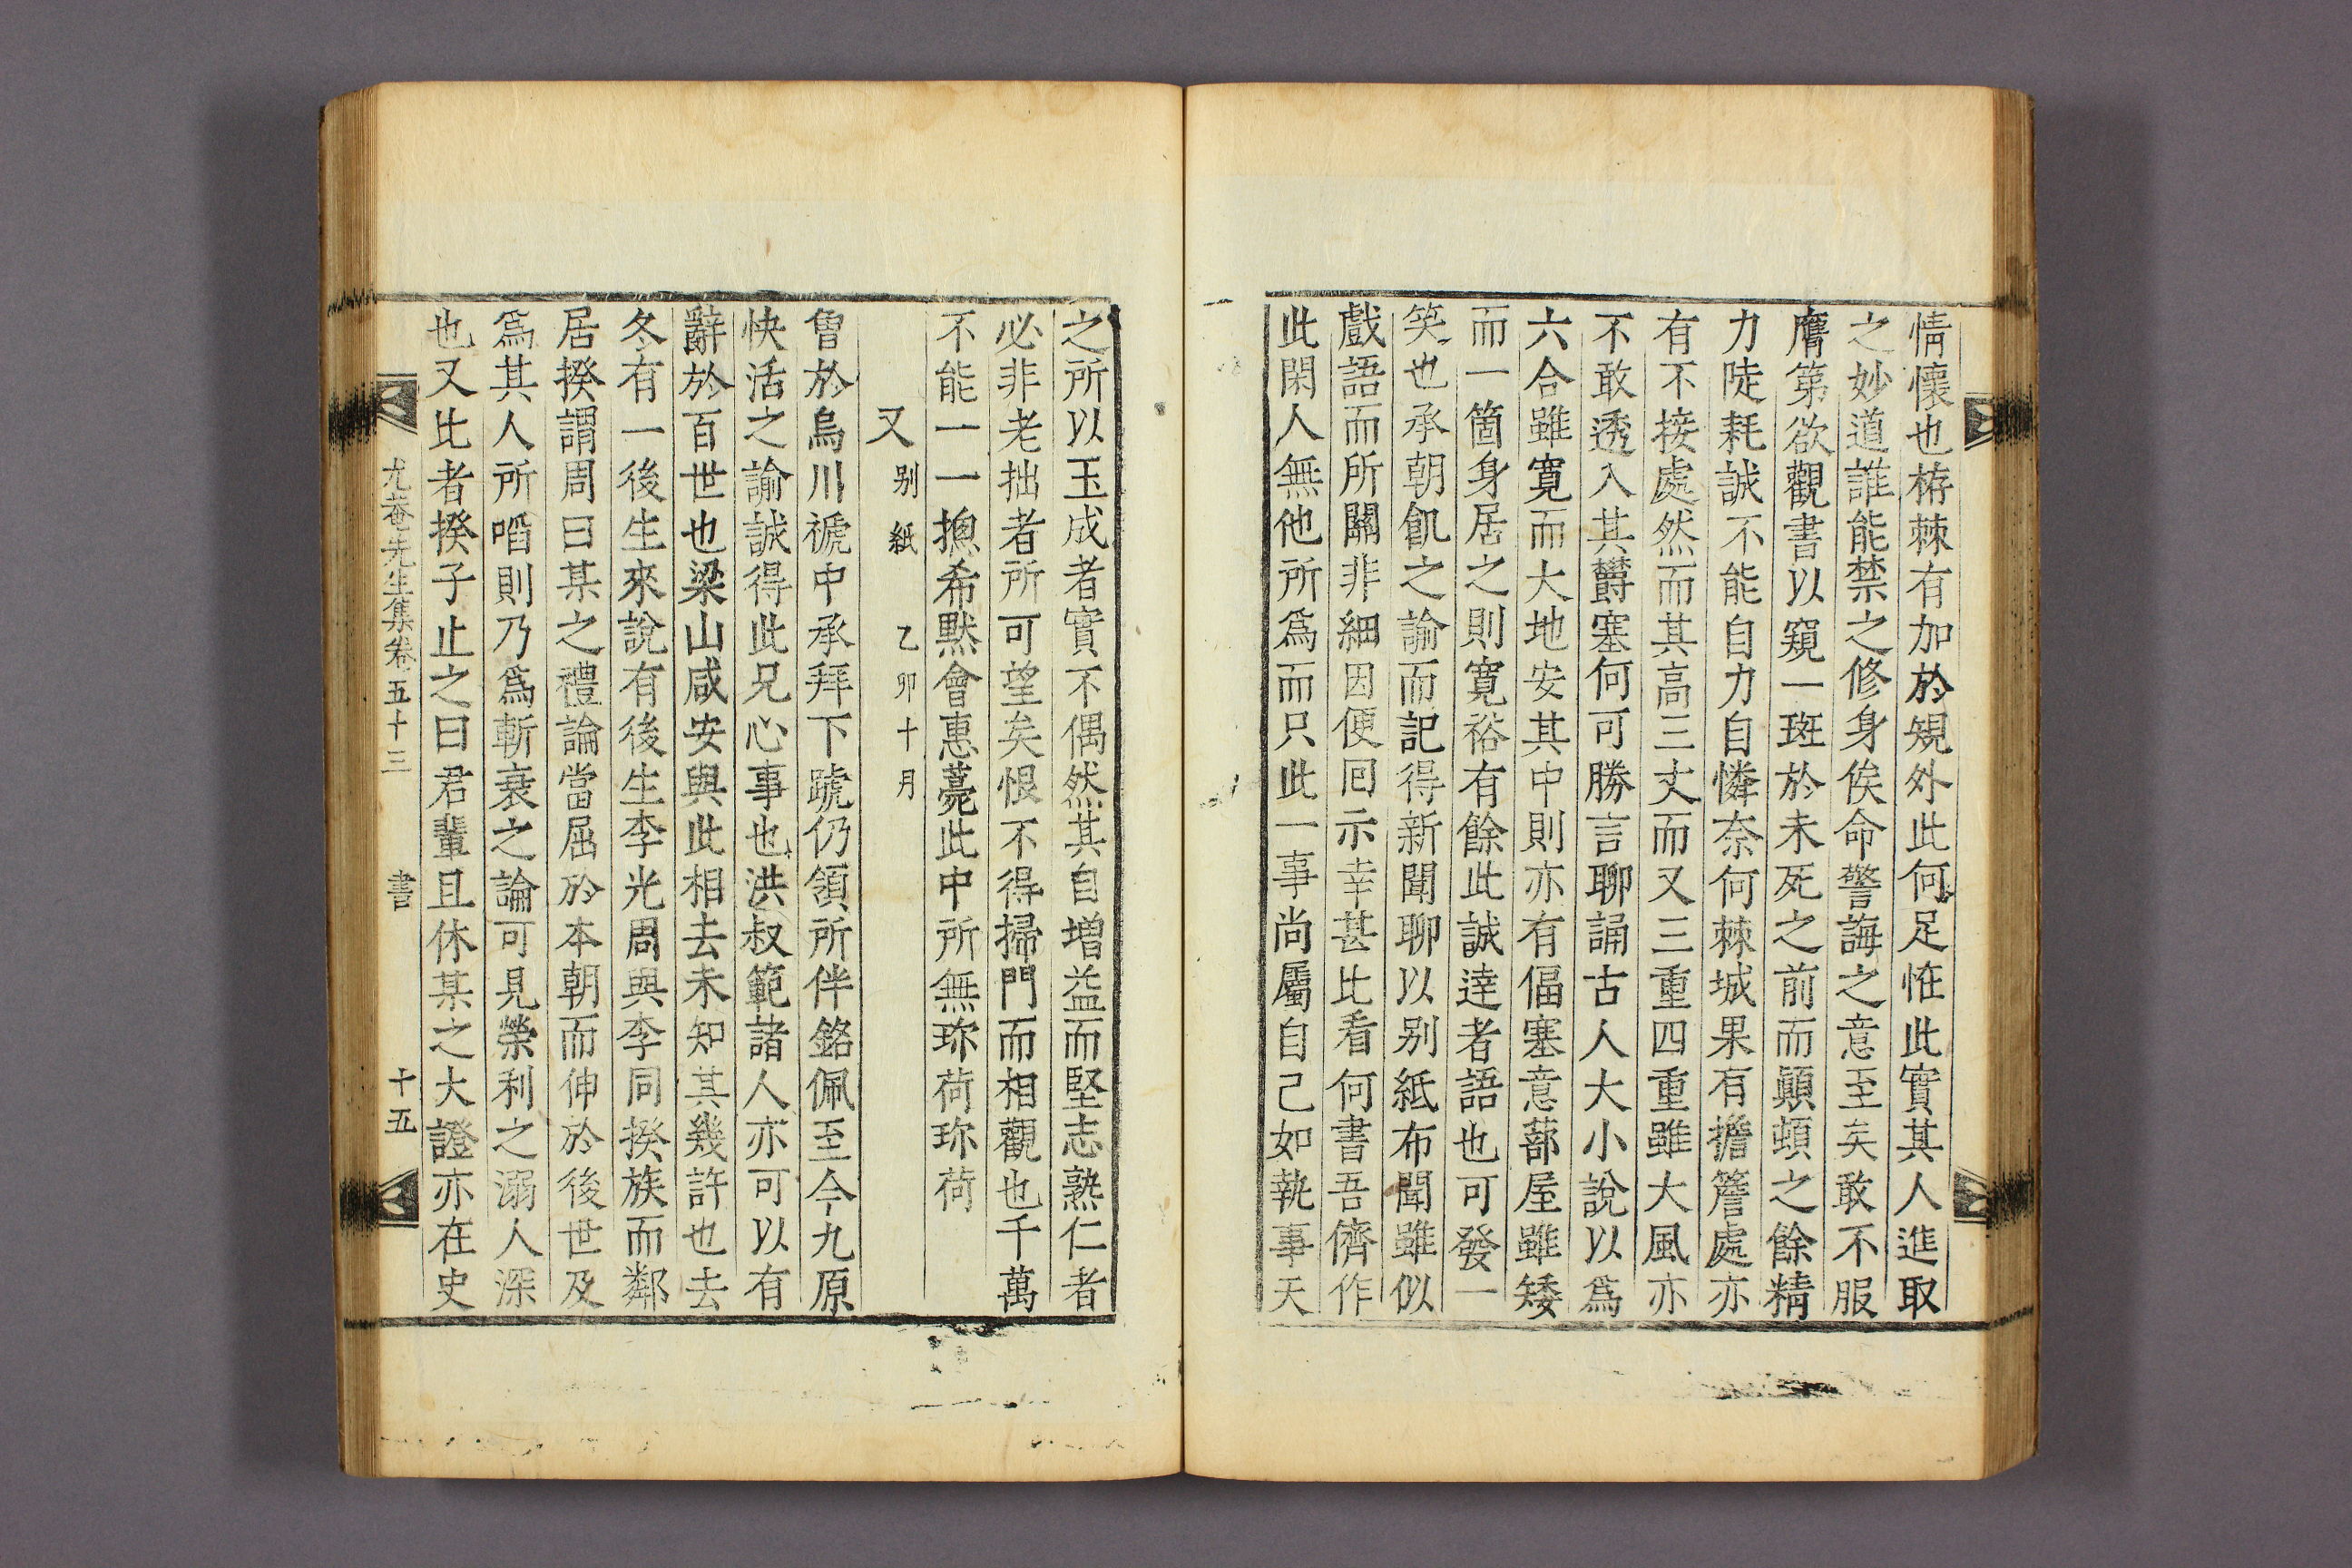 情懷也栫棘有加於䂓外此何足恠此實其人進取
之妙道誰能禁之修身俟命警誨之意至矣敢不服
膺第欲觀書以窺一斑於未死之前而顚頓之餘精
力陡耗誠不能自力自憐奈何棘城果有擔簷處亦
有不接處然而其高三丈而又三重四重雖大風亦
不敢透入其欝塞何可勝言聊誦古人大小說以爲
六合雖寛而大地安其中則亦有偪塞意蔀屋雖矮
而一箇身居之則寛裕有餘此誠達者語也可發一
笑也承朝飢之諭而記得新聞聊以别紙布聞雖似
戲語而所關非細因便回示幸甚比看何書吾儕作
此閑人無他所爲而只此一事尚屬自己如執事天
之所以玉成者實不偶然其自增益而堅志熟仁者
必非老拙者所可望矣恨不得掃門而相觀也千萬
不能一一揔希黙會惠薧此中所無珎荷珎荷
又 别紙 乙卯十月
曾於烏川褫中承拜下䟽仍領所伴銘佩至今九原
快活之諭誠得此兄心事也洪叔範諸人亦可以有
辭於百世也梁山咸安與此相去未知其幾許也去
冬有一後生來說有後生李光周與李同揆族而鄰
居揆謂周曰某之禮論當屈於本朝而伸於後世及
爲其人所啗則乃爲斬衰之論可見榮利之溺人深
也又比者揆子止之曰君輩且休某之大證亦在史
尤菴先生集卷五十三 書 十五